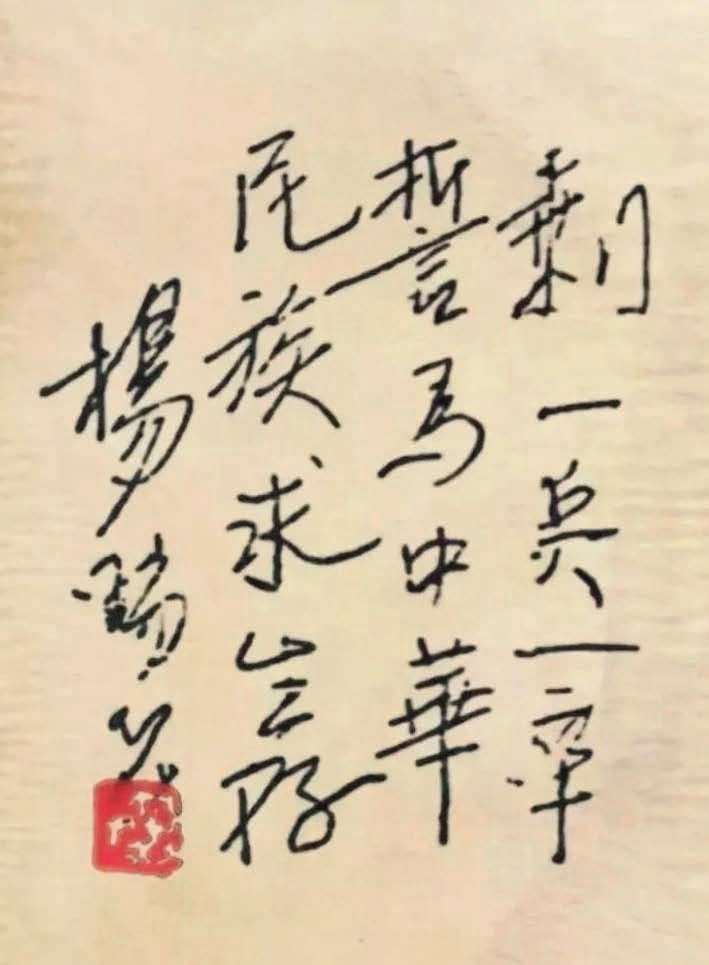 剩一兵一卒
誓為中華
民族求生存
楊瑞符